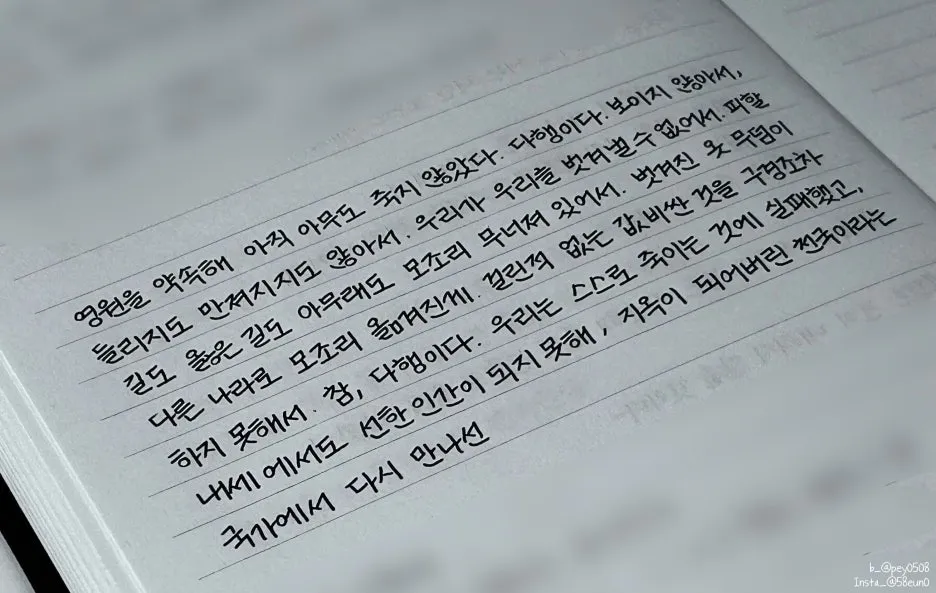 영원을 약속해 아직 아무도 죽지 않았다. 다행이다. 보이지 않아서,
들리지도 만져지지도 않아서. 우리가 우리를 벗겨낼 수 없어서. 피할
길도 옳은 길도 아무래도 모조리 무너져 있어서. 벗겨진 옷 무덤이
다른 나라로 모조리 옮겨진게. 걸린적 없는 값비싼 것을 구경조차
하지 못해서. 참, 다행이다. 우리는 스스로 죽이는 것에 실패했고,
내세에서도 선한 인간이 되지 못해, 지옥이 되어버린 천국이라는
국가에서 다시 만나선
b_@pey0508
Insta_@58eun0